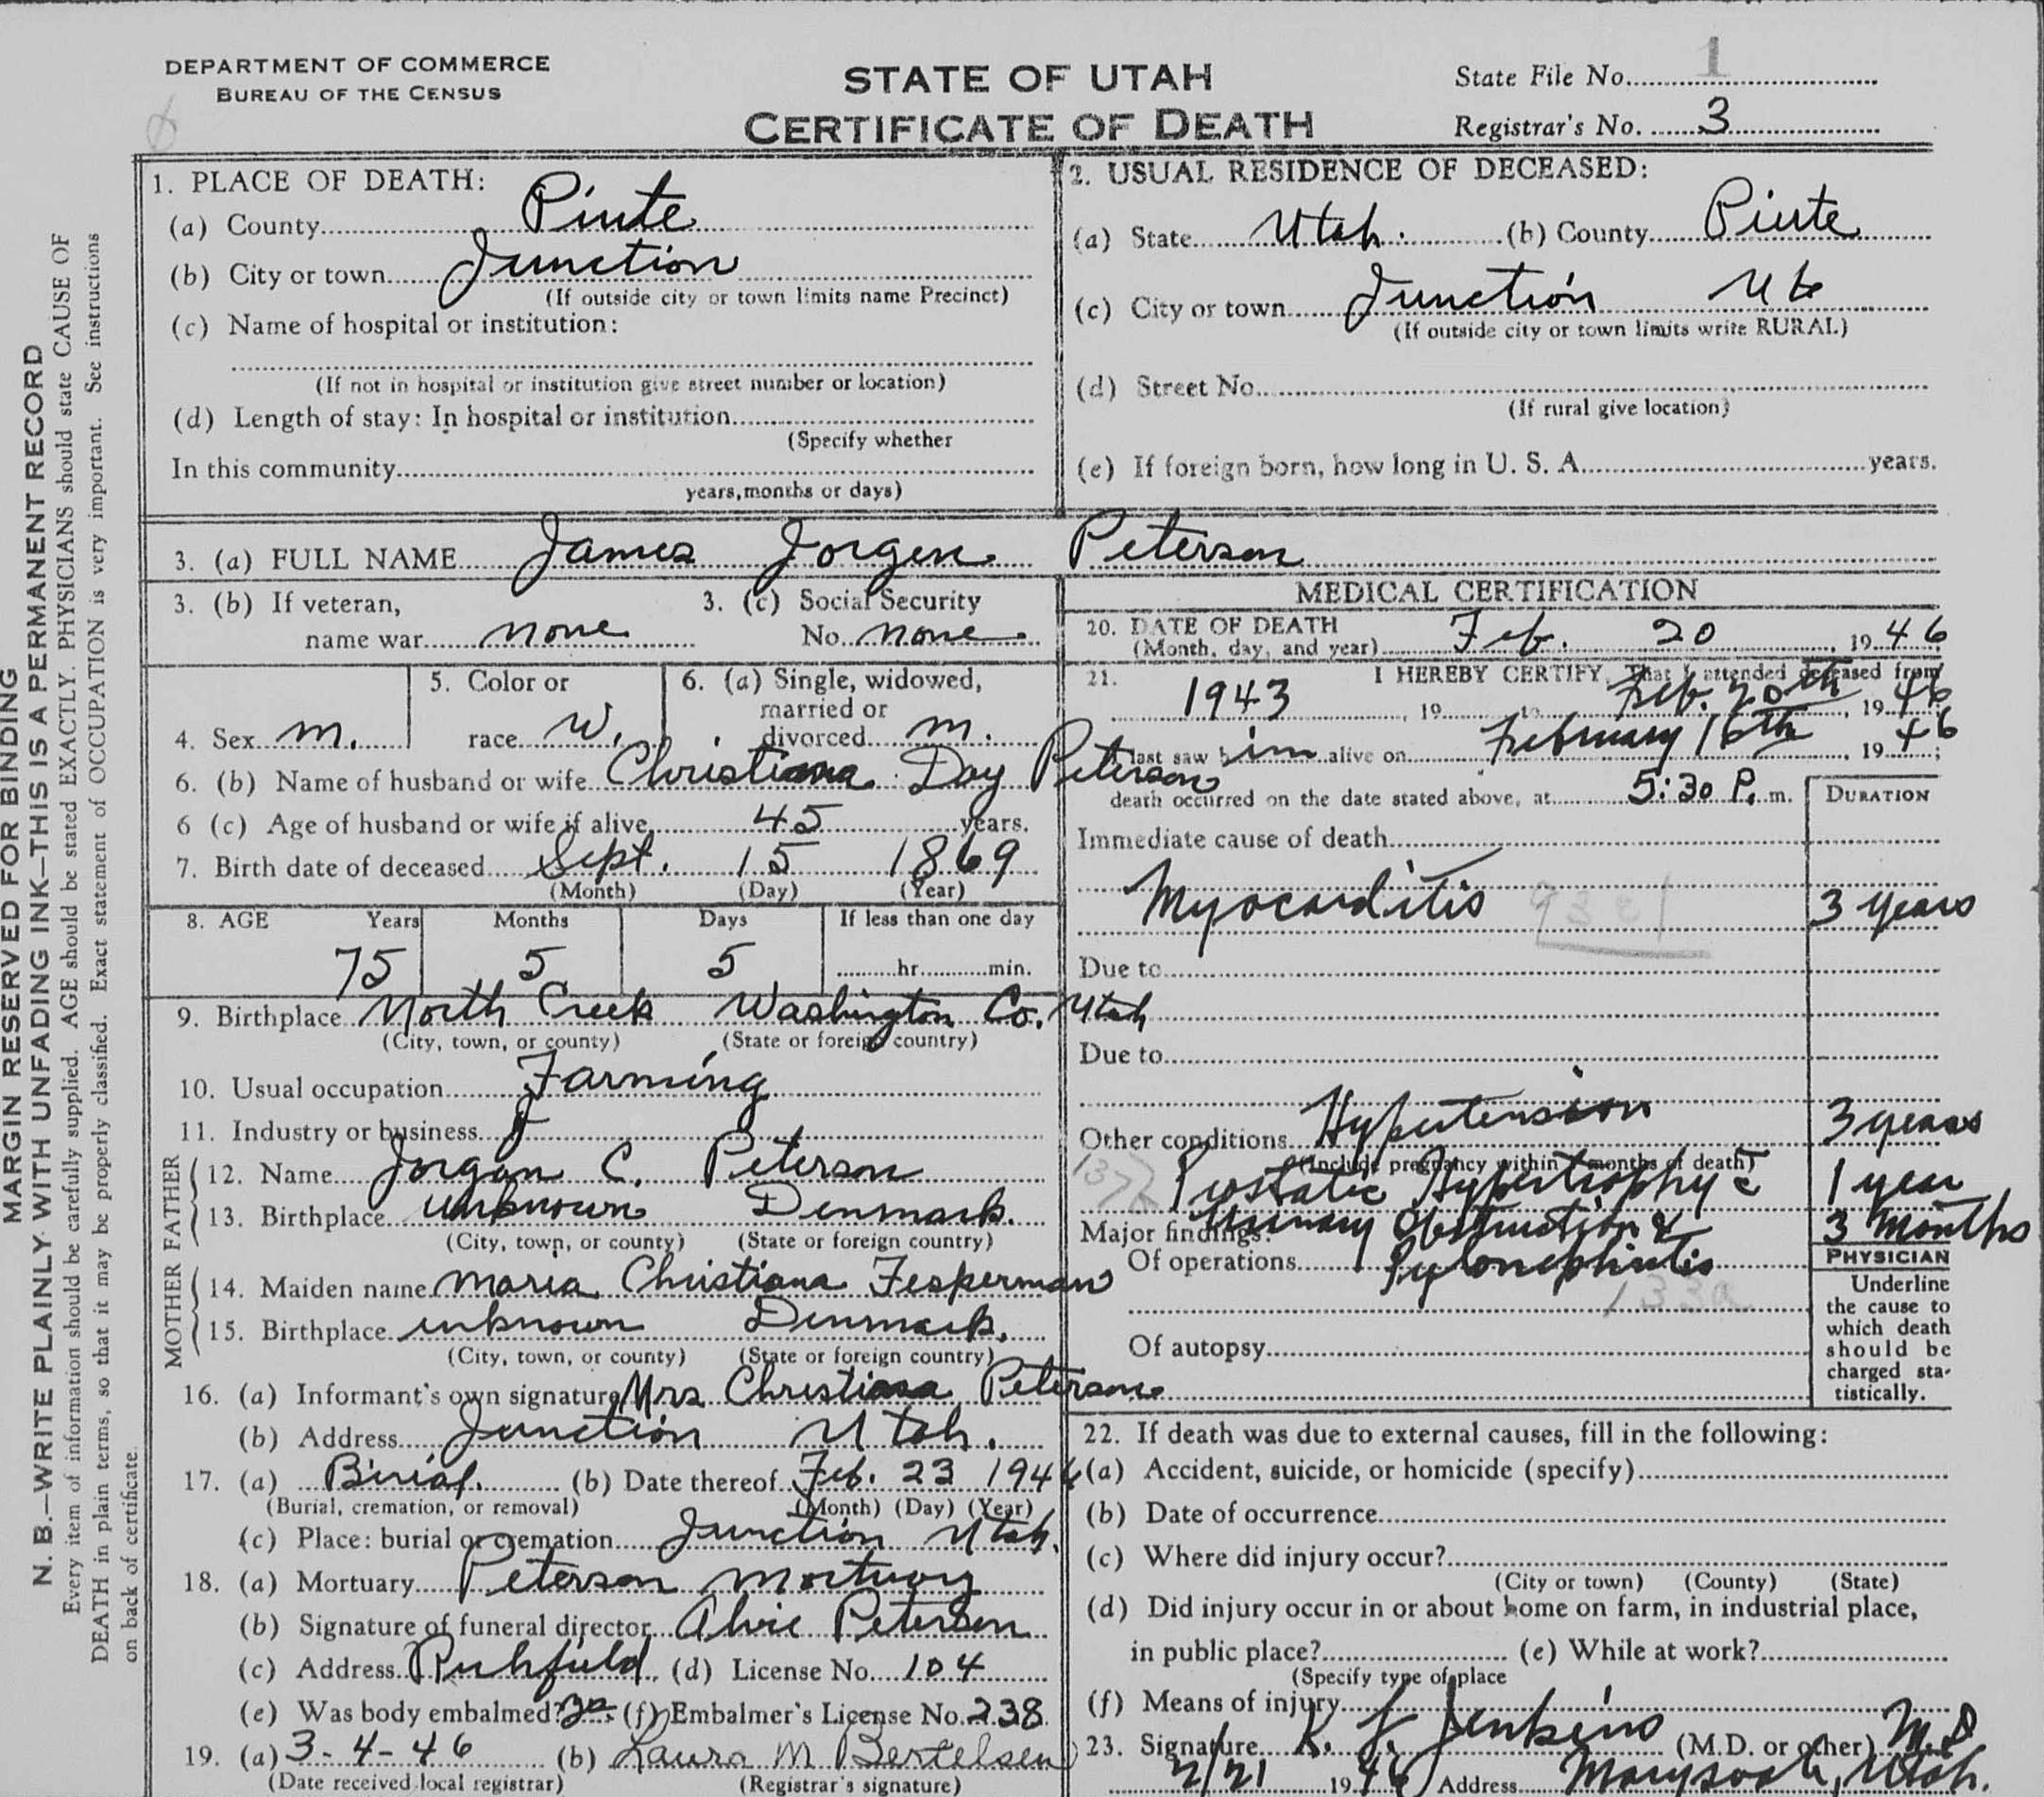 DEPARTMENT OF COMMERCE
BUREAU OF THE CENSUS
STATE OF UTAH
CERTIFICATE OF DEATH
State File No. 1
Registrar's No. 3
MARGIN RESERVED FOR BINDING
N. B.—WRITE PLAINLY WITH UNFADING INK—THIS IS A PERMANENT RECORD
Every item of information should be carefully supplied. AGE should be stated EXACTLY. PHYSICIANS should state CAUSE OF
DEATH in plain terms, so that it may be properly classified. Exact statement of OCCUPATION is very important. See instructions
on back of certificate.
1. PLACE OF DEATH:
(a) County Piute
(b) City or town Junction
(If outside city or town limits name Precinct)
(c) Name of hospital or institution:
(If not in hospital or institution give street number or location)
(d) Length of stay: In hospital or institution
(Specify whether
In this community
years, months or days)
2. USUAL RESIDENCE OF DECEASED:
(a) State Utah. (b) County Piute
(c) City or town Junction Ut
(If outside city or town limits write RURAL)
(d) Street No.
(If rural give location)
(e) If foreign born, how long in U. S. A. years.
3. (a) FULL NAME James Jorgen Peterson
3. (b) If veteran,
name war none
3. (c) Social Security
No. none
4. Sex m.
5. Color or
race W.
6. (a) Single, widowed,
married or
divorced m.
6. (b) Name of husband or wife Christiana Day Peterson
6 (c) Age of husband or wife if alive 45 years.
7. Birth date of deceased Sept. 15 1869
(Month) (Day) (Year)
8. AGE Years Months Days If less than one day
75 5 5 hr. min.
9. Birthplace North Creek Washington Co. Utah
(City, town, or county) (State or foreign country)
10. Usual occupation Farming
11. Industry or business
FATHER
12. Name Jorgan C. Peterson
13. Birthplace unknown Denmark.
(City, town, or county) (State or foreign country)
MOTHER
14. Maiden name Maria Christiana Fesperman
15. Birthplace unknown Denmark.
(City, town, or county) (State or foreign country)
16. (a) Informant's own signature Mrs Christiana Peterson
(b) Address Junction Utah.
17. (a) Burial. (b) Date thereof Feb. 23 1946
(Burial, cremation, or removal) (Month) (Day) (Year)
(c) Place: burial or cremation Junction Utah.
18. (a) Mortuary Peterson Mortuary
(b) Signature of funeral director Alvie Petersen
(c) Address Richfield (d) License No. 104
(e) Was body embalmed? (f) Embalmer's License No. 238
19. (a) 3-4-46 (b) Laura M Bertelsen
(Date received local registrar) (Registrar's signature)
MEDICAL CERTIFICATION
20. DATE OF DEATH
(Month, day, and year) Feb. 20, 1946
21. I HEREBY CERTIFY, That I attended deceased from
1943, 19 to Feb. 20th, 1946
I last saw him alive on February 16th, 1946;
death occurred on the date stated above, at 5:30 P. m.
DURATION
Immediate cause of death
Myocarditis 93c1 3 years
Due to
Due to
Other conditions Hypertension 3 years
(Include pregnancy within months of death)
137a Prostatic Hypertrophy c 1 year
Major findings: Urinary Obstruction & 3 Months
Of operations Pylonephritis
133a
Of autopsy
PHYSICIAN
Underline
the cause to
which death
should be
charged sta-
tistically.
22. If death was due to external causes, fill in the following:
(a) Accident, suicide, or homicide (specify)
(b) Date of occurrence
(c) Where did injury occur?
(City or town) (County) (State)
(d) Did injury occur in or about home on farm, in industrial place,
in public place? (e) While at work?
(Specify type of place
(f) Means of injury
23. Signature R. J. Jenkins (M.D. or other) M.D
2/21 1946 Address Marysvale, Utah.